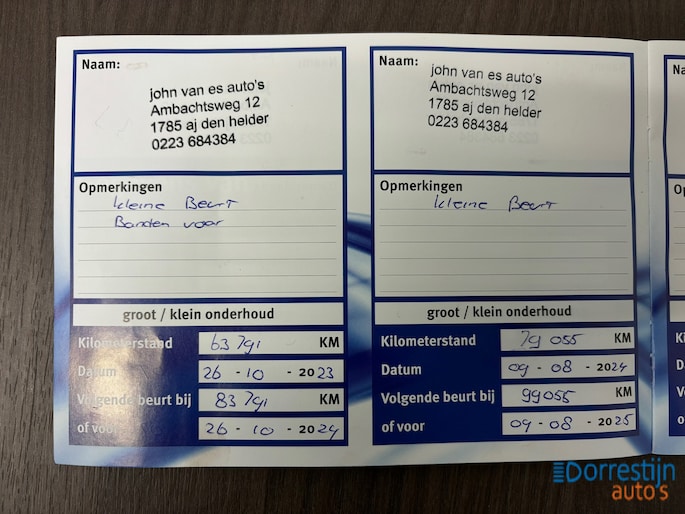 Naam:
john van es auto's
Ambachtsweg 12
1785 aj den helder
0223 684384
Opmerkingen
kleine Beurt
Banden voor
groot / klein onderhoud
Kilometerstand 63 791 KM
Datum 26 - 10 - 2023
Volgende beurt bij 83 791 KM
of voor 26 - 10 - 2024
Naam:
john van es auto's
Ambachtsweg 12
1785 aj den helder
0223 684384
Opmerkingen
kleine Beurt
groot / klein onderhoud
Kilometerstand 79 055 KM
Datum 09 - 08 - 2024
Volgende beurt bij 99055 KM
of voor 09 - 08 - 2025
Dorrestijn
auto's